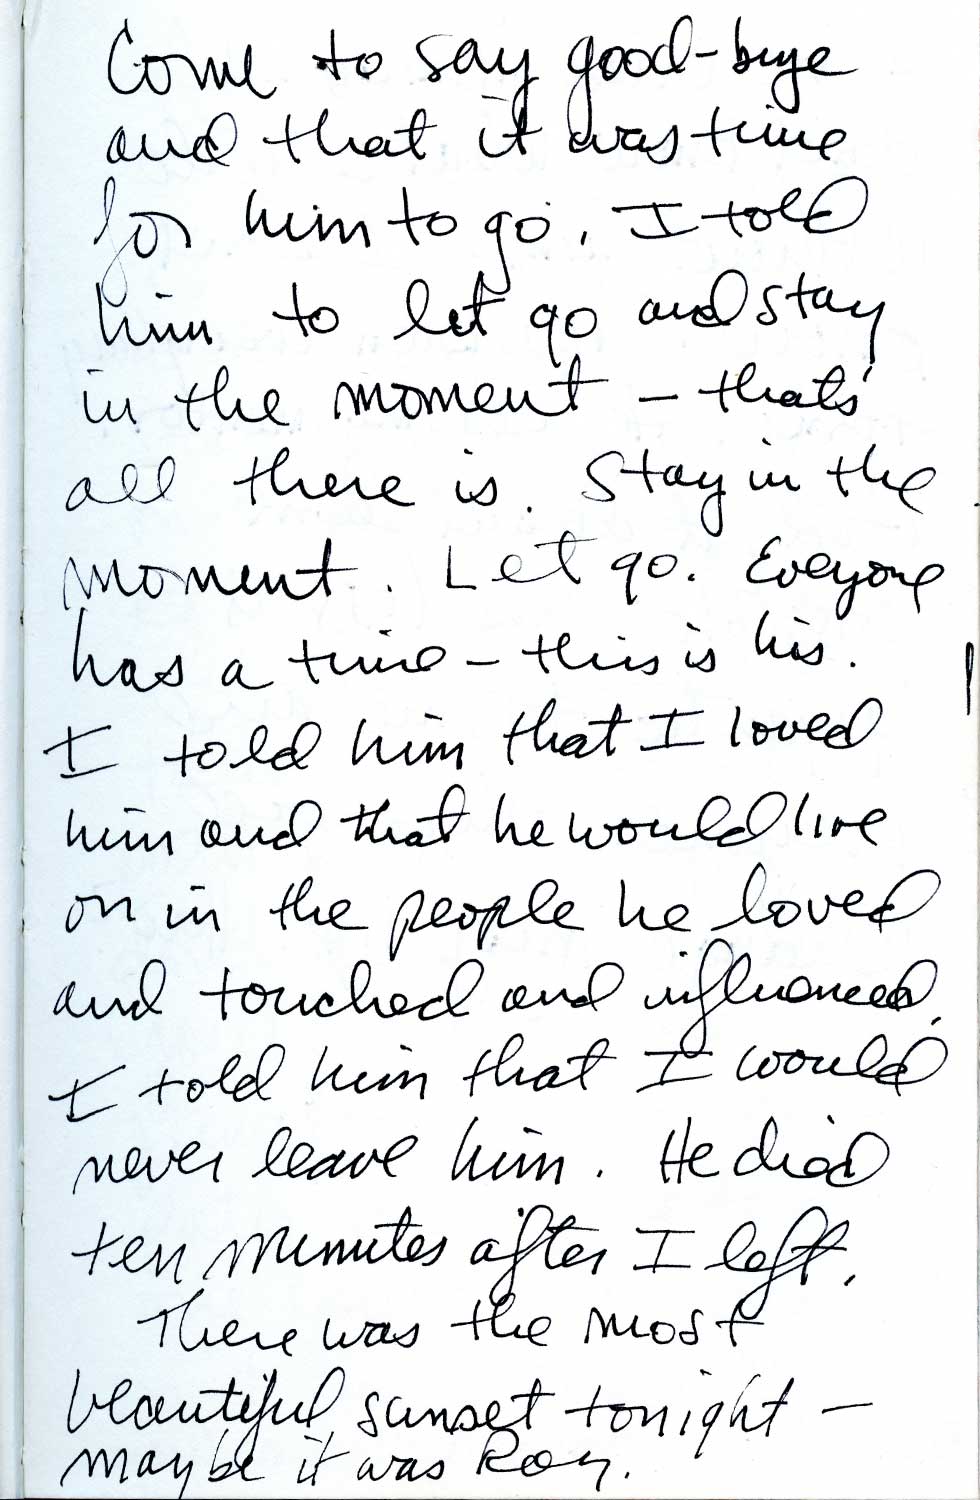 Come to say good-bye
and that it was time
for him to go. I told
him to let go and stay
in the moment – that's
all there is. Stay in the
moment. Let go. Everyone
has a time – this is his.
I told him that I loved
him and that he would live
on in the people he loved
and touched and influenced.
I told him that I would
never leave him. He died
ten minutes after I left.
There was the most
beautiful sunset tonight –
maybe it was Roy.